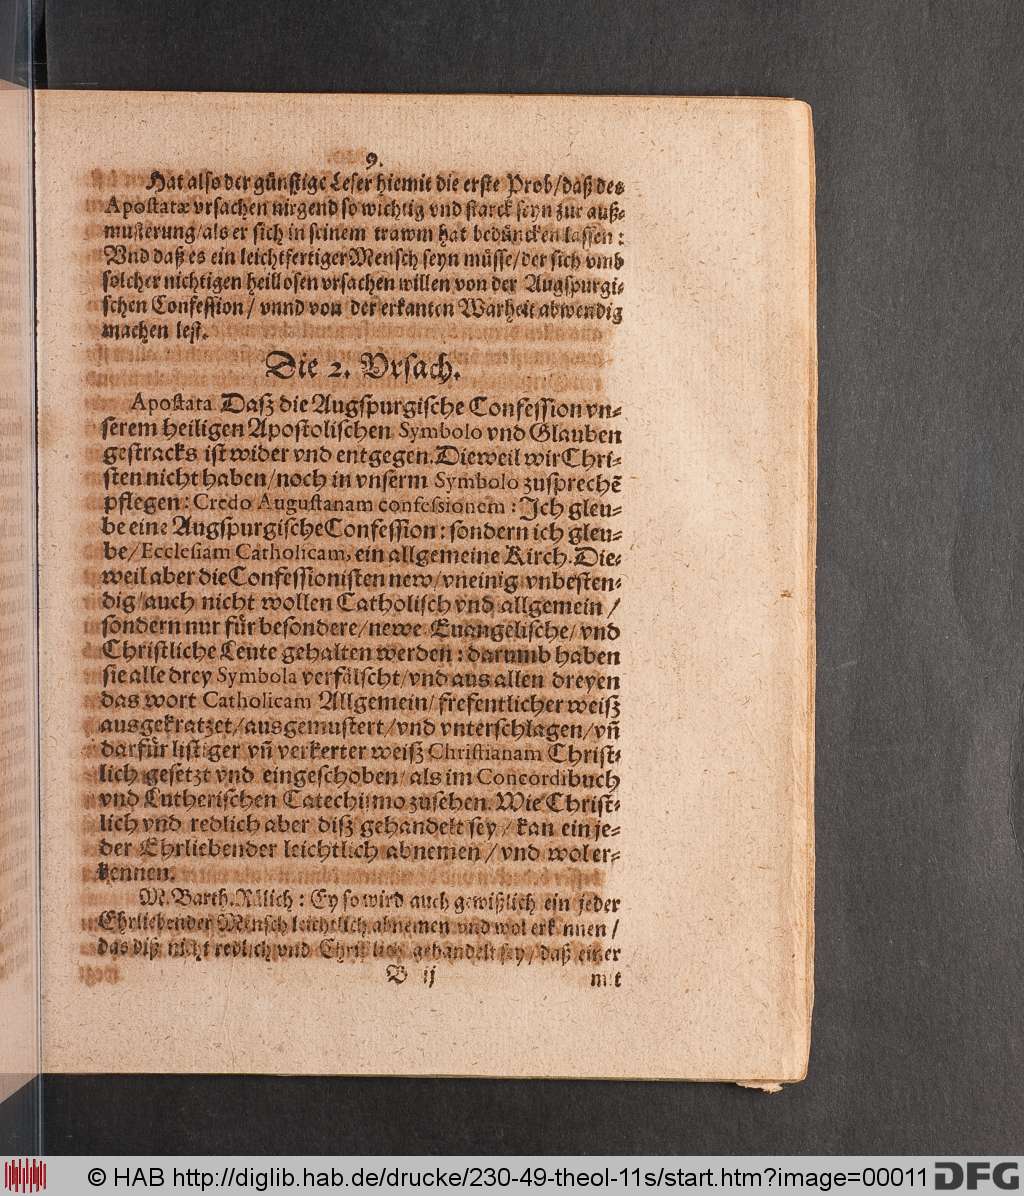 9.
Hat also der günstige Leser hiemit die erste Prob/daß des
Apostatæ vrsachen nirgend so wichtig vnd starck seyn zur auß-
musterung/als er sich in seinem trawm hat bedüncken lassen:
Vnd daß es ein leichtfertiger Mensch seyn müsse/der sich vmb
solcher nichtigen heillosen vrsachen willen von der Augspurgi-
schen Confession/ vnnd von der erkanten Warheit abwendig
machen lest.
Die 2. Vrsach.
Apostata Dasz die Augspurgische Confession vn-
serem heiligen Apostolischen Symbolo vnd Glauben
gestracks ist wider vnd entgegen. Dieweil wir Chri-
sten nicht haben/noch in vnserm Symbolo zusprechẽ
pflegen: Credo Augustanam confessionem: Ich gleu-
be eine Augspurgische Confession: sondern ich gleu-
be/Ecclesiam Catholicam, ein allgemeine Kirch. Die-
weil aber die Confessionisten new/vneinig vnbesten-
dig/auch nicht wollen Catholisch vnd allgemein/
sondern nur für besondere/newe Euangelische/vnd
Christliche Leute gehalten werden: darumb haben
sie alle drey Symbola verfälscht/vnd aus allen dreyen
das wort Catholicam Allgemein/frefentlicher weiß
ausgekratzet/ausgemustert/vnd vnterschlagen/vñ
darfür listiger vñ verkerter weiß Christianam Christ-
lich gesetzt vnd eingeschoben/als im Concordibuch
vnd Lutherischen Catechismo zusehen. Wie Christ-
lich vnd redlich aber disz gehandelt sey/kan ein je-
der Ehrliebender leichtlich abnemen/vnd wol er-
kennen.
M. Barth. Rülich: Ey so wird auch gewißlich ein jeder
Ehrliebender Mensch leichtlich abnemen vnd wol erkennen/
das diß nicht redlich vnd Christlich gehandelt sey/daß einer
B ij mit
© HAB http://diglib.hab.de/drucke/230-49-theol-11s/start.htm?image=00011 DFG